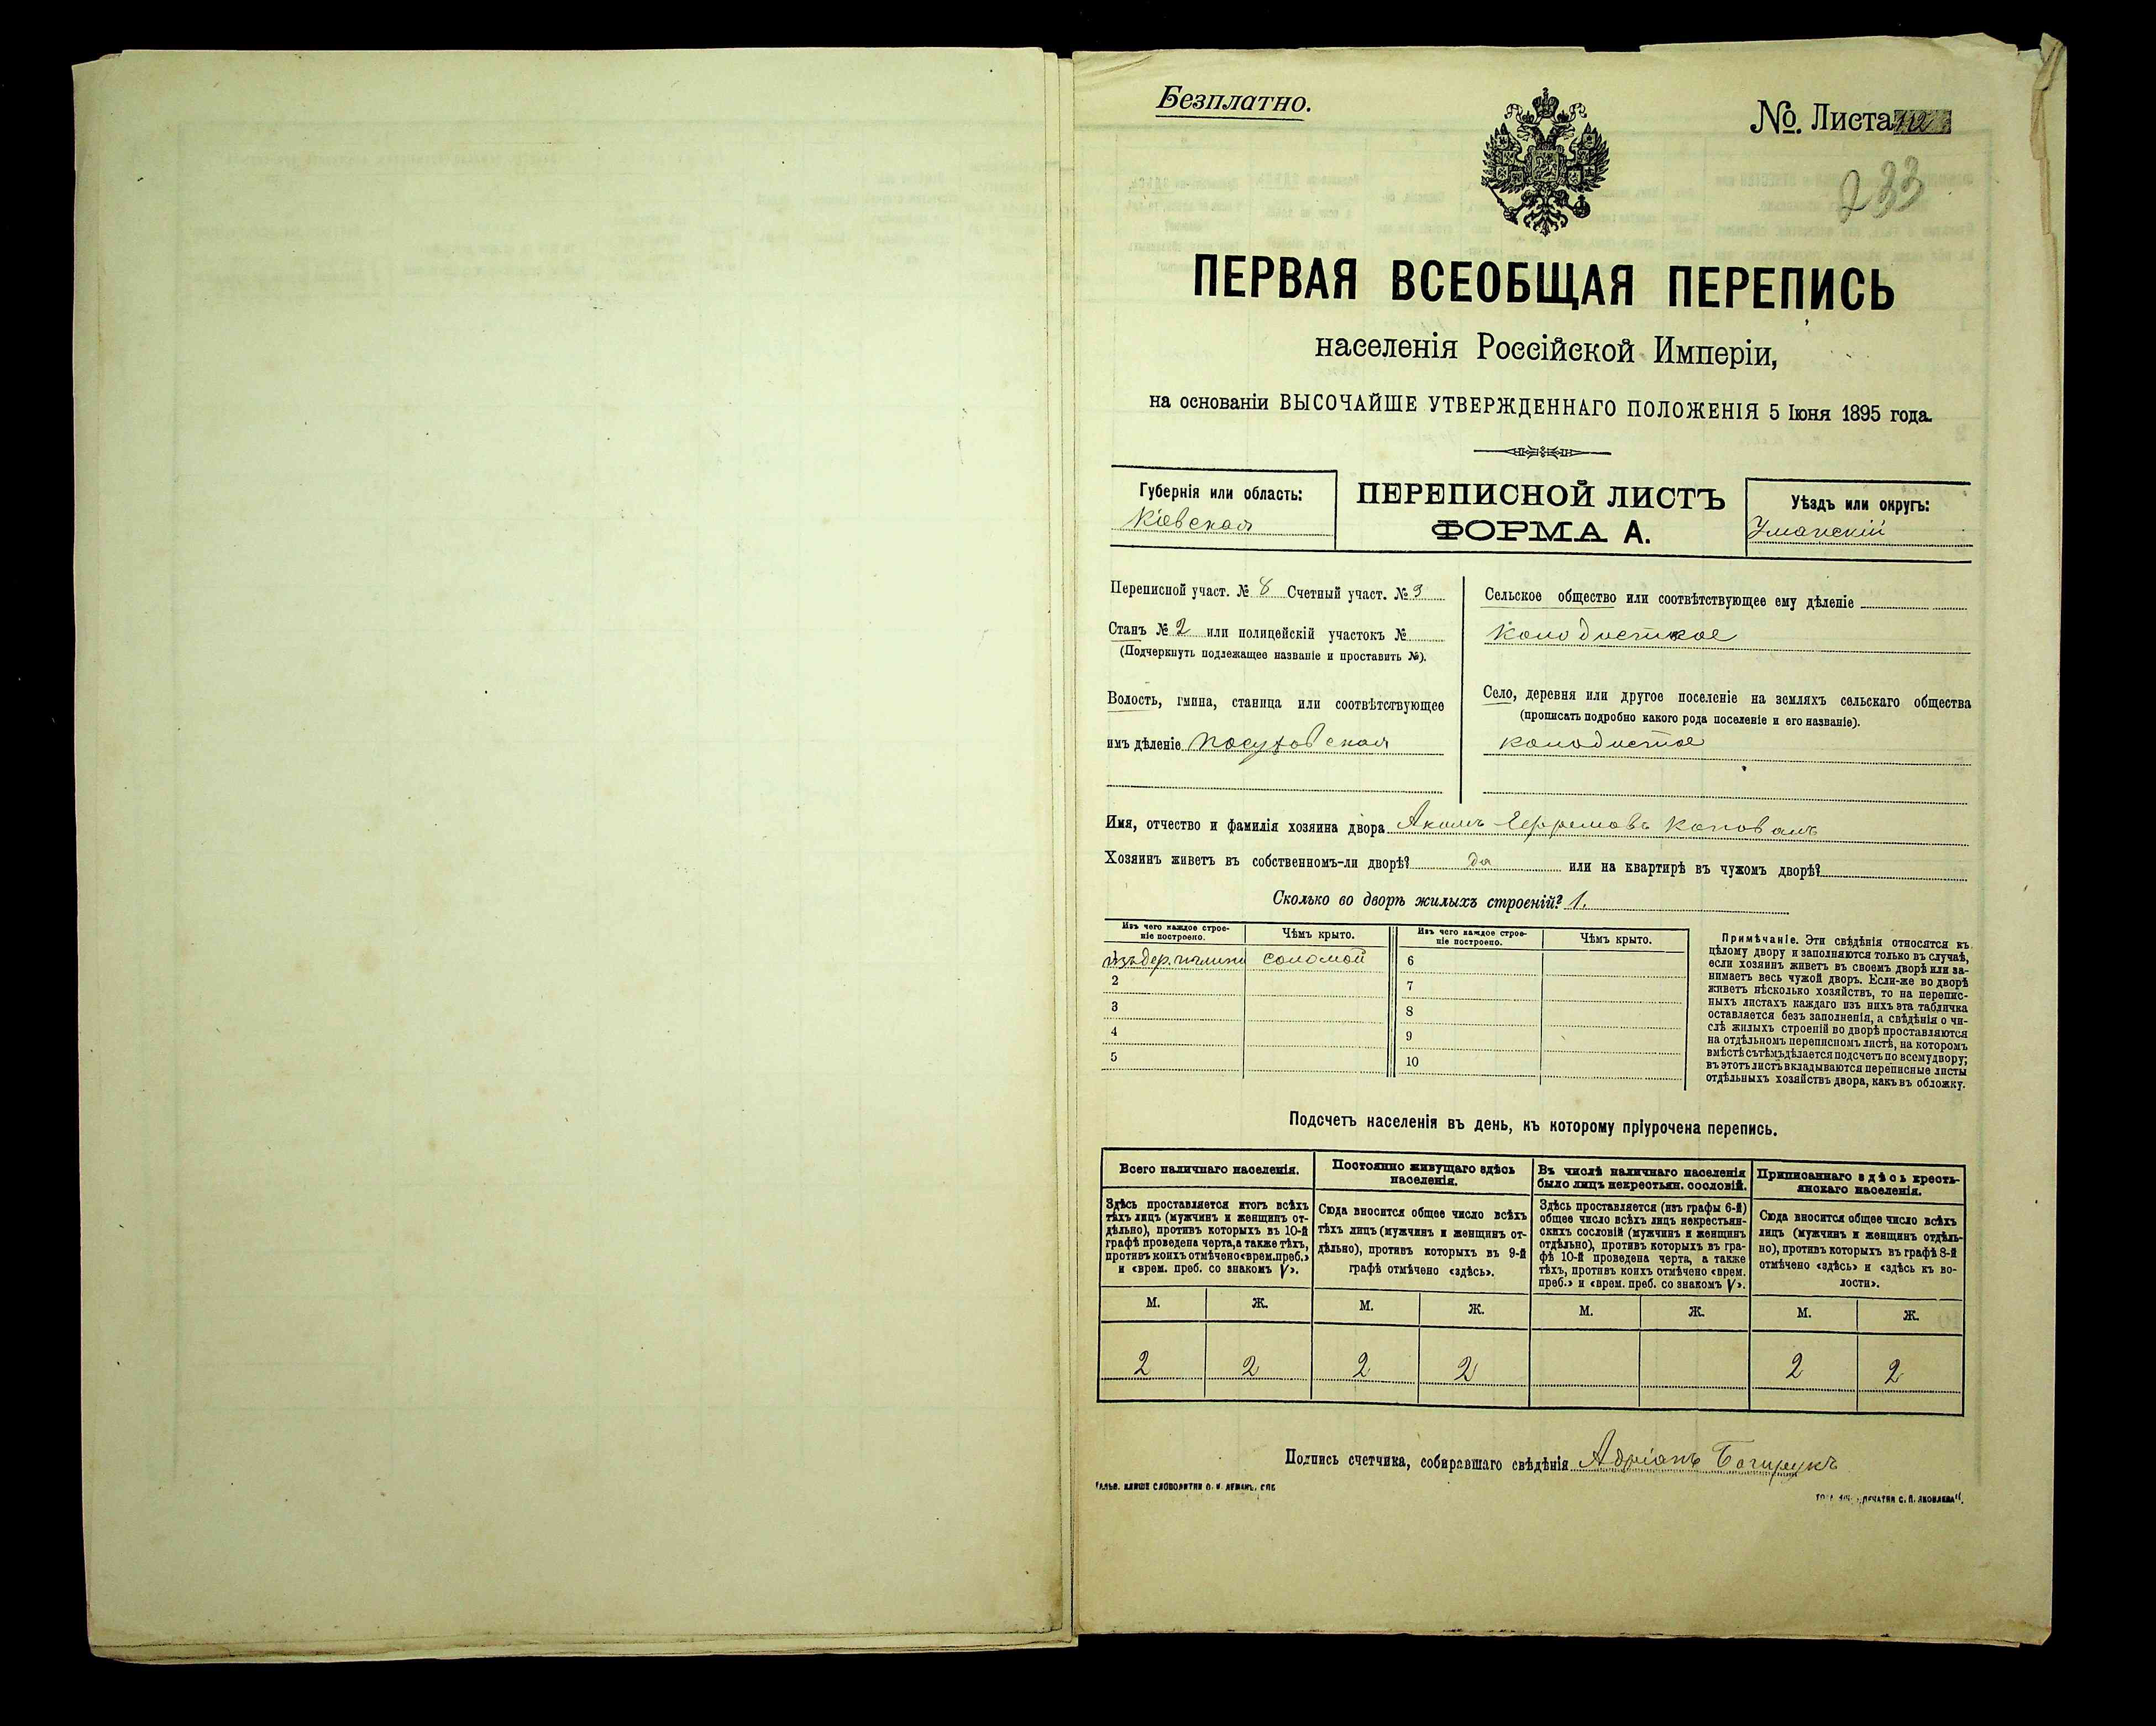 Безплатно.
№. Листа
233
ПЕРВАЯ ВСЕОБЩАЯ ПЕРЕПИСЬ
населенія Россійской Имперіи,
на основаніи ВЫСОЧАЙШЕ УТВЕРЖДЕННАГО ПОЛОЖЕНІЯ 5 Іюня 1895 года.
Губернія или область:
Кіевская
ПЕРЕПИСНОЙ ЛИСТЪ
ФОРМА А.
Уѣздъ или округъ:
Уманскій
Переписной участ. № 8 Счетный участ. № 3
Станъ № 2 или полицейскій участокъ №
(Подчеркнуть подлежащее названіе и проставить №).
Волость, гмина, станица или соотвѣтствующее
имъ дѣленіе Посуховская
Сельское общество или соотвѣтствующее ему дѣленіе
Колодисткое
Село, деревня или другое поселеніе на земляхъ сельскаго общества
(прописать подробно какого рода поселеніе и его названіе).
колодистое
Имя, отчество и фамилія хозяина двора Акимъ Ефремовъ Коновалъ
Хозяинъ живетъ въ собственномъ-ли дворѣ? да или на квартирѣ въ чужомъ дворѣ?
Сколько во дворѣ жилыхъ строеній? 1.
Изъ чего каждое строе-
ніе построено.
Чѣмъ крыто.
Изъ чего каждое строе-
ніе построено.
Чѣмъ крыто.
изъ дер. и глины соломой 6
2 7
3 8
4 9
5 10
Примѣчаніе. Эти свѣдѣнія относятся къ
цѣлому двору и заполняются только въ случаѣ,
если хозяинъ живетъ въ своемъ дворѣ или за-
нимаетъ весь чужой дворъ. Если-же во дворѣ
живетъ нѣсколько хозяйствъ, то на перепис-
ныхъ листахъ каждаго изъ нихъ эта табличка
оставляется безъ заполненія, а свѣдѣнія о чи-
слѣ жилыхъ строеній во дворѣ проставляются
на отдѣльномъ переписномъ листѣ, на которомъ
вмѣстѣ съ тѣмъ дѣлается подсчетъ по всему двору;
въ этотъ листъ вкладываются переписные листы
отдѣльныхъ хозяйствъ двора, какъ въ обложку.
Подсчетъ населенія въ день, къ которому пріурочена перепись.
Всего наличнаго населенія.
Здѣсь проставляется итогъ всѣхъ
тѣхъ лицъ (мужчинъ и женщинъ от-
дѣльно), противъ которыхъ въ 10-й
графѣ проведена черта, а также тѣхъ,
противъ коихъ отмѣчено «врем. преб.»
и «врем. преб. со знакомъ V».
Постоянно живущаго здѣсь
населенія.
Сюда вносится общее число всѣхъ
тѣхъ лицъ (мужчинъ и женщинъ от-
дѣльно), противъ которыхъ въ 9-й
графѣ отмѣчено «здѣсь».
Въ числѣ наличнаго населенія
было лицъ некрестьян. сословій.
Здѣсь проставляется (изъ графы 6-й)
общее число всѣхъ лицъ некрестьян-
скихъ сословій (мужчинъ и женщинъ
отдѣльно), противъ которыхъ въ гра-
фѣ 10-й проведена черта, а также
тѣхъ, противъ коихъ отмѣчено «врем.
преб.» и «врем. преб. со знакомъ V».
Приписаннаго здѣсь кресть-
янскаго населенія.
Сюда вносится общее число всѣхъ
лицъ (мужчинъ и женщинъ отдѣль-
но), противъ которыхъ въ графѣ 8-й
отмѣчено «здѣсь» и «здѣсь къ во-
лости».
М. Ж. М. Ж. М. Ж. М. Ж.
2 2 2 2 2 2
Подпись счетчика, собиравшаго свѣдѣнія Адріанъ
СЛОВОЛИТНИ О. И. ЛЕМАНЪ, СПБ
С. П. ЯКОВЛЕВА